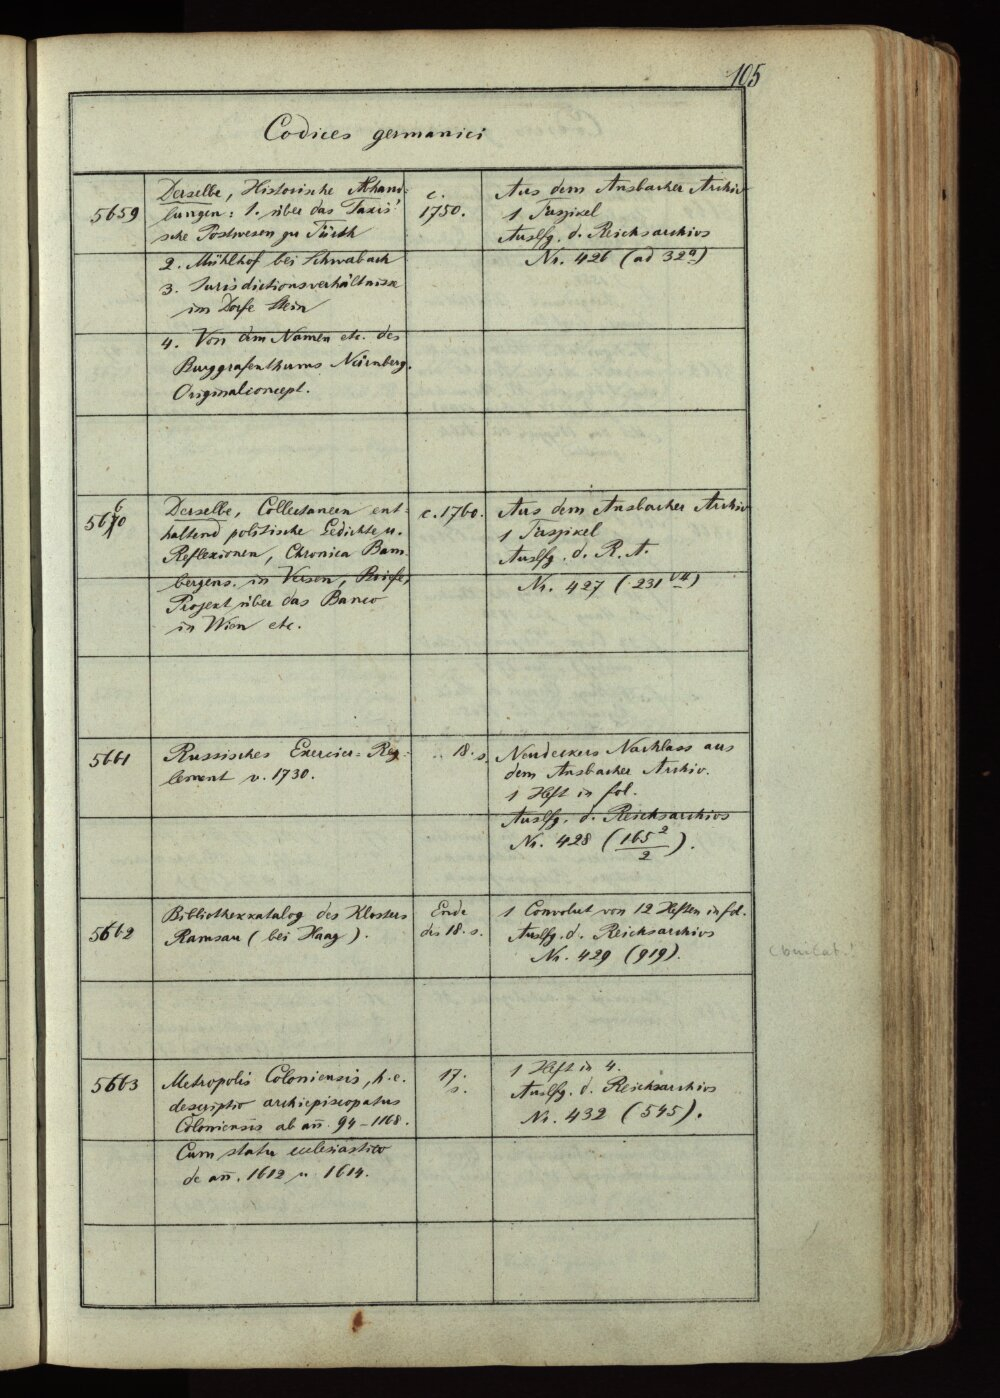 105
Codices germanici
5659
Derselbe, Historische Abhand-
lungen: 1. über das Taxis'
sche Postwesen zu Fürth
2. Mühlhof bei Schwabach
3. Jurisdictionsverhältnisse
im Dorfe Stein
4. Von dem Namen etc. des
Burggrafenthums Nürnberg.
Originalconcept.
c.
1750.
Aus dem Ansbacher Archiv
1 Faszikel
Auslfg. d. Reichsarchivs
Nr. 426 (ad 32a)
5660
Derselbe, Collectaneen ent-
haltend politische Gedichte u.
Reflexionen, Chronica Bam-
bergens. in Versen, Briefe,
Projekt über das Banco
in Wien etc.
c. 1760.
Aus dem Ansbacher Archiv
1 Faszikel
Auslfg. d. R. A.
Nr. 427 (231 VII)
5661
Russisches Exercier-Reg-
lement v. 1730.
18. s.
Neudeckers Nachlass aus
dem Ansbacher Archiv.
1 Heft in fol.
Auslfg. d. Reichsarchivs
Nr. 428 (165²/2).
5662
Bibliothekkatalog des Klosters
Ramsau (bei Haag).
Ende
des 18. s.
1 Convolut von 12 Heften in fol.
Auslfg. d. Reichsarchivs
Nr. 429 (919).
5663
Metropolis Coloniensis, h. e.
descriptio archiepiscopatus
Coloniensis ab añ. 94-1168.
Cum statu ecclesiastico
de añ. 1612 u 1614.
17.
s.
1 Heft in 4.
Auslfg. d. Reichsarchivs
Nr. 432 (545).